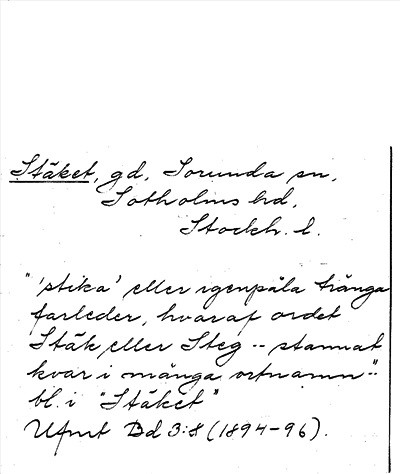 Stäket, gd, Sorunda sn,
Sotholms hd,
Stockh. l.
"'stika' eller igenpåla trånga
farleder, hvaraf ordet
Stäk eller Steg -- stannat
kvar i många ortnamn"
bl. i "Stäket"
Ufmt Bd 3:8 (1894-96).